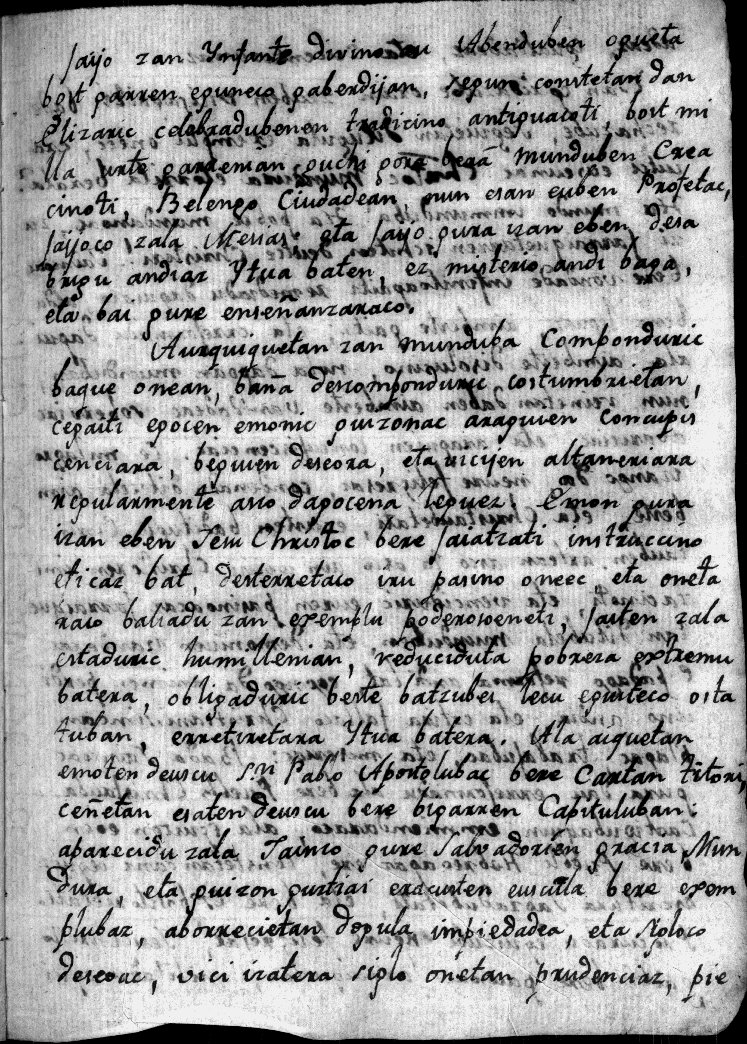 Jaijo zan Ynfante divino au Abenduben ogueta
bost garren eguneco gaberdijan, segun constetan dan
Elizaric celebradubenen tradicino antiguacoti, bost mi
lla urte garreman guchi gora bera munduben Crea
cinoti, Belengo Ciudadean, nun esan euben Profetac,
Jaijoco zala Messias. eta Jaijo gura izan eben, desa
brigu andiaz Ytua baten, ez misterio andi baga,
eta bai gure enseñanzaraco.
Aurquiquetan zan munduba Componduric
baque onean, baña descomponduric costumbrietan,
cegaiti egocen emonic guizonac araguien Concupis
cenciara, beguien deseora, eta vicijen altaneriara
regularmente asco dagocena leguez. Emon gura
izan eben Jesu Christoc bere Jaiatzati instruccino
eticaz bat, desterretaco iru pasino oneec, eta oneta
raco baliadu zan exemplu poderosoeneti, Jaiten zala
estaduric humillenian, reduciduta pobreza extremu
batera, obligaduric beste batzubei lecu eguiteco osta
tuban, erretiretara Ytua batera. Ala aiquetan
emoten deuscu Sn. Pablo Apostolubac bere Cartan Titori,
ceñetan esaten deuscu bere bigarren Capituluban:
aparecidu zala Jainco gure Salvadorien gracia Mun
dura, eta guizon guztiai eracusten euscula bere exem
plubaz, aborrecietan dogula impiedadea, eta sigloco
deseoac, vici izatera siglo onetan prudenciaz, pie